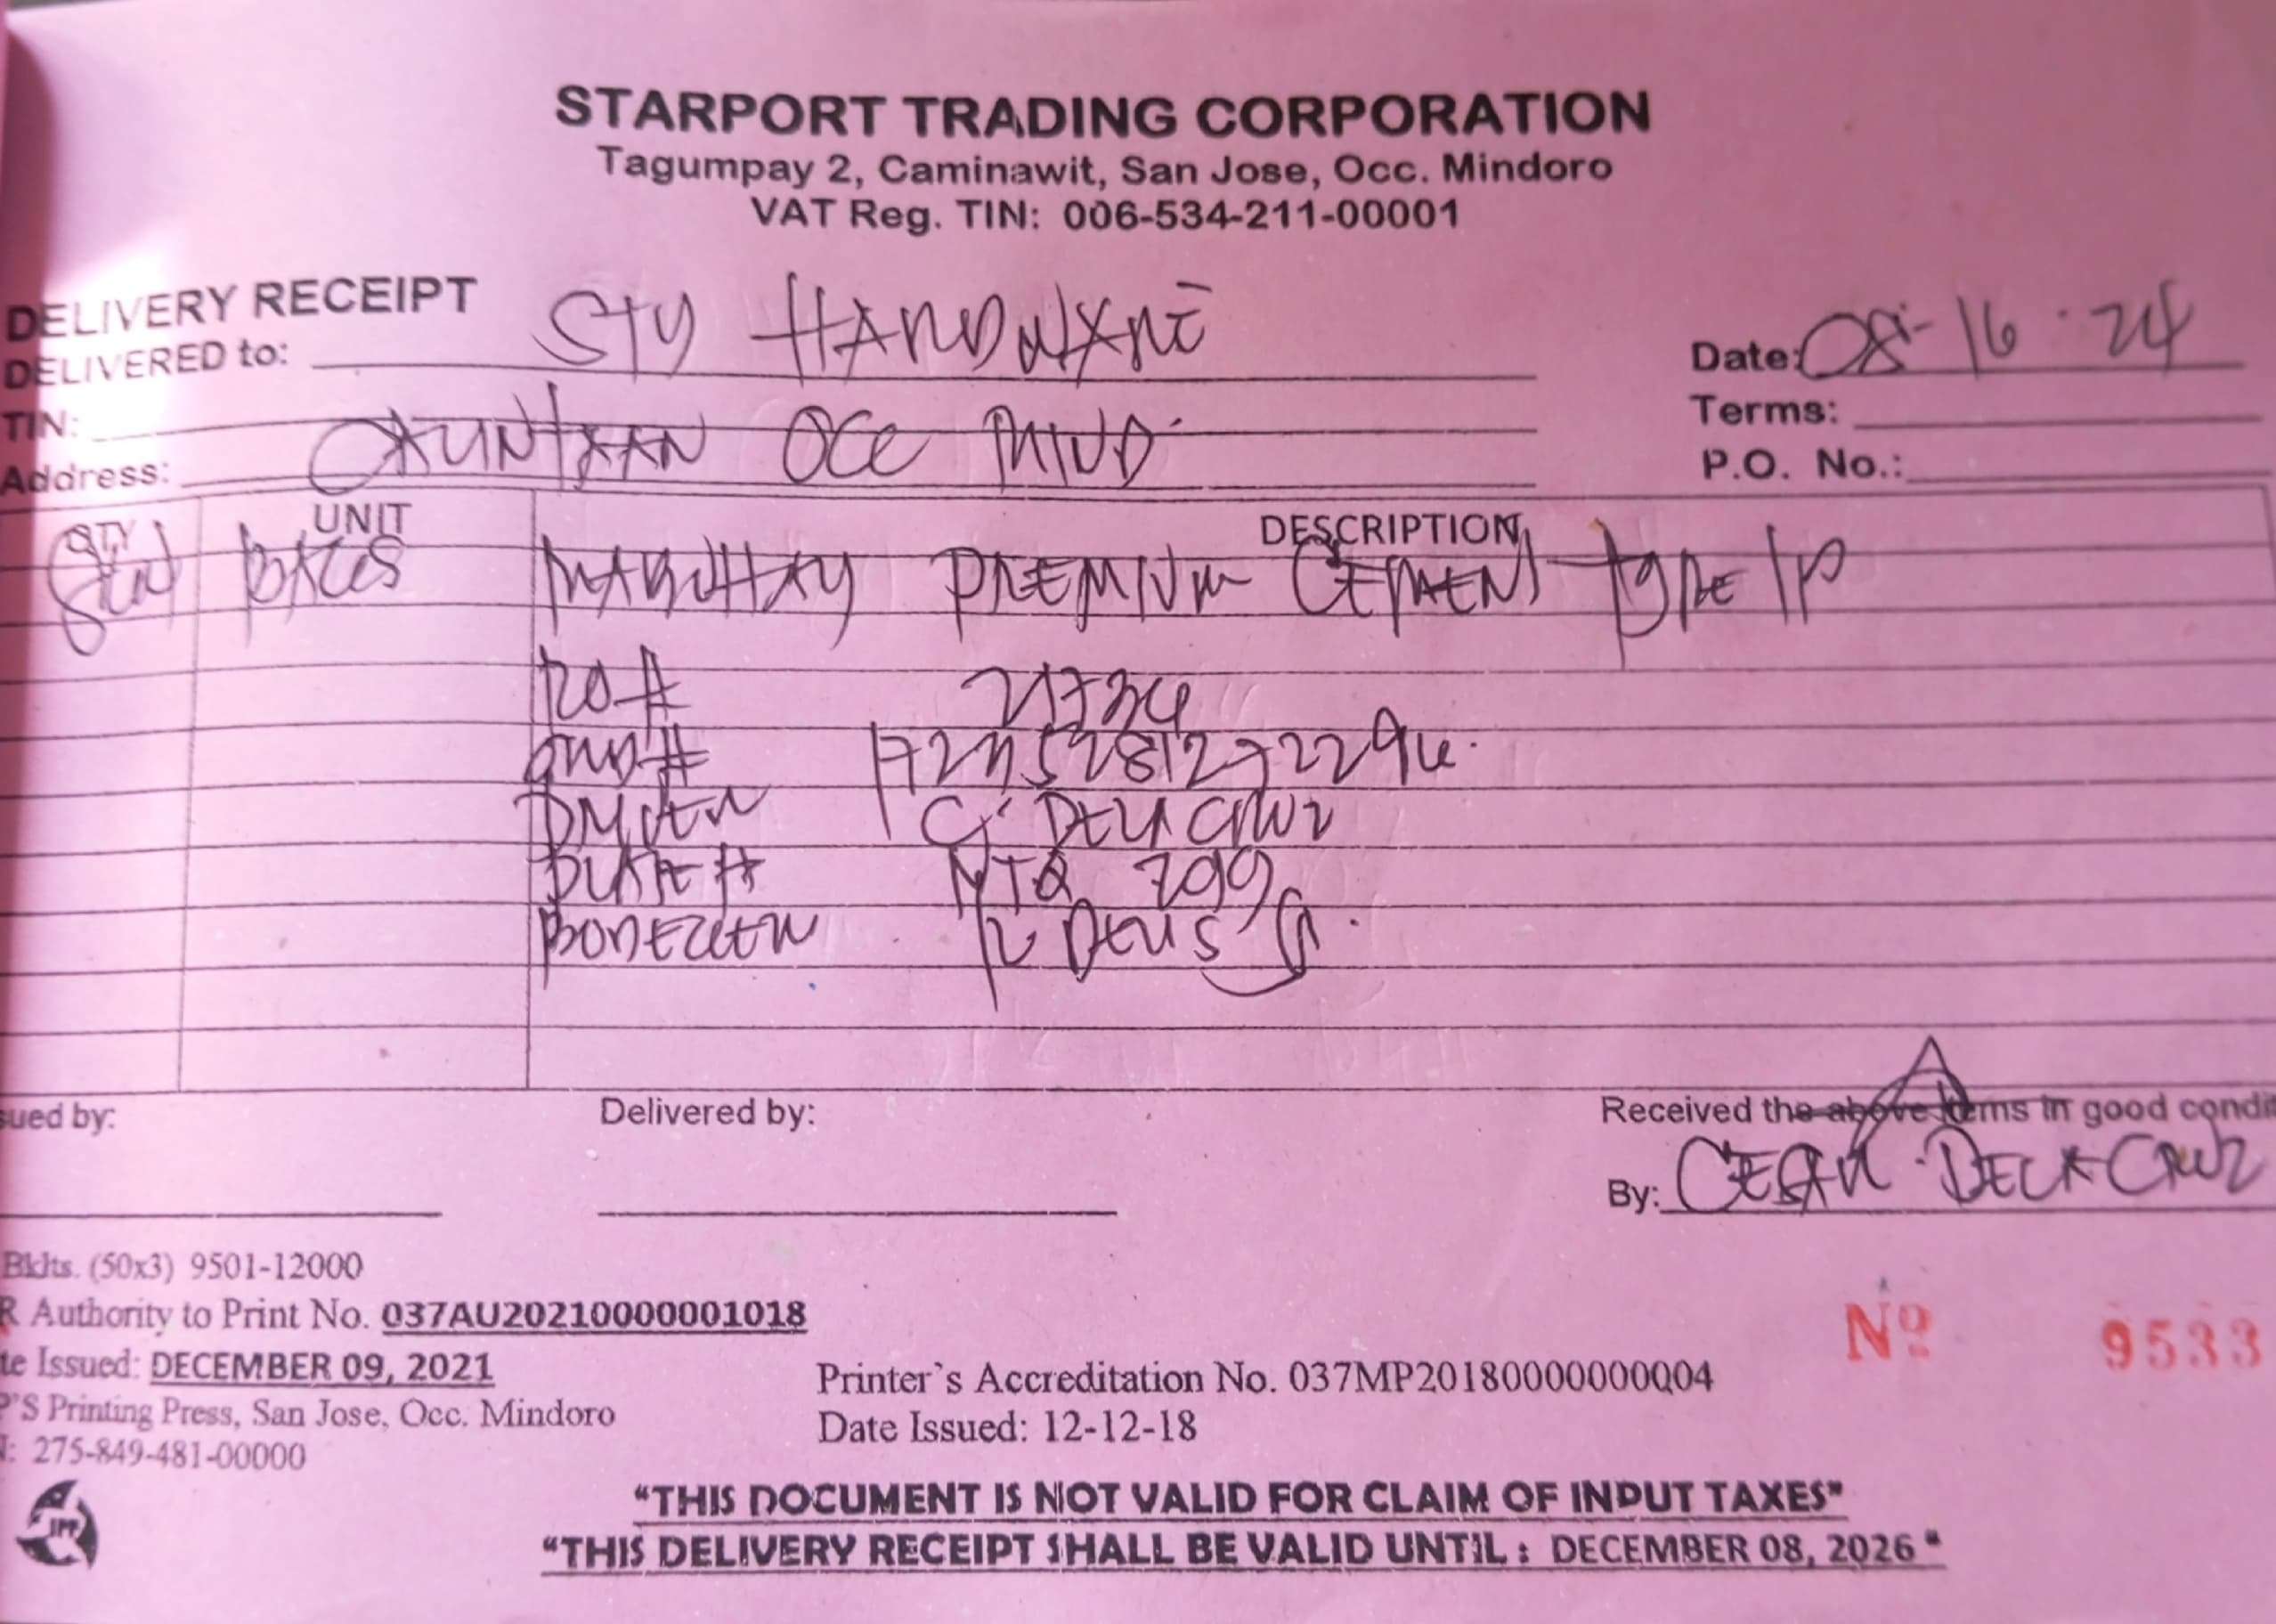 STARPORT TRADING CORPORATION
Tagumpay 2, Caminawit, San Jose, Occ. Mindoro
VAT Reg. TIN: 006-534-211-00001
DELIVERY RECEIPT
DELIVERED to: STY HARDWARE
Date: 08-16-24
TIN:
Terms:
Address: OCC MIND.
P.O. No.:
QTY UNIT DESCRIPTION
BAGS MABUHAY PREMIUM CEMENT TYPE 1P
#
#
DRIVER C. DELA CRUZ
PLATE # NTQ 799
BODEGUER
sued by:
Delivered by:
Received the above items in good condi
By: CESAR DELA CRUZ
Bklts. (50x3) 9501-12000
R Authority to Print No. 037AU20210000001018
te Issued: DECEMBER 09, 2021
P'S Printing Press, San Jose, Occ. Mindoro
N: 275-849-481-00000
Printer's Accreditation No. 037MP20180000000004
Date Issued: 12-12-18
Nº 9533
IPP
"THIS DOCUMENT IS NOT VALID FOR CLAIM OF INPUT TAXES"
"THIS DELIVERY RECEIPT SHALL BE VALID UNTIL : DECEMBER 08, 2026 "